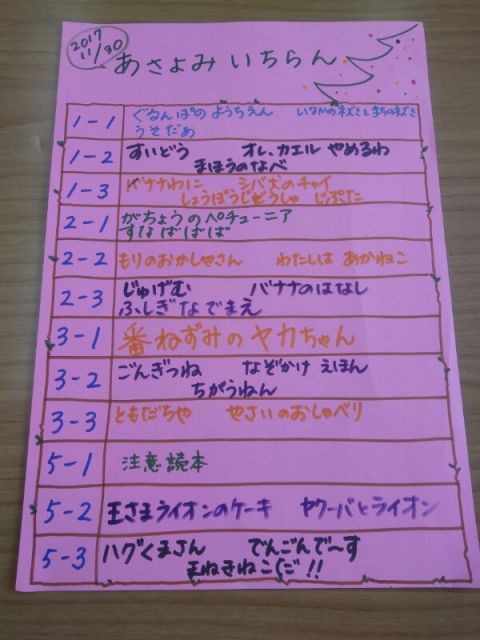 2017
11/30
あさよみ いちらん
1-1 ぐるんぱの ようちえん いなかのネズミとまちのネズミ
うそだぁ
1-2 すいどう オレ、カエル やめるわ
まほうのなべ
1-3 バナナわに シバ犬のチャイ
しょうぼうじどうしゃ じぷた
2-1 がちょうのペチューニア
すなばばば
2-2 もりのおかしやさん わたしは あかねこ
2-3 じゅげむ バナナのはなし
ふしぎなでまえ
3-1 番ねずみのヤカちゃん
3-2 ごんぎつね なぞかけ えほん
ちがうねん
3-3 ともだちや やさいのおしゃべり
5-1 注意読本
5-2 王さまライオンのケーキ ヤクーバとライオン
5-3 ハグくまさん でんごんで〜す
まねきねこ !!